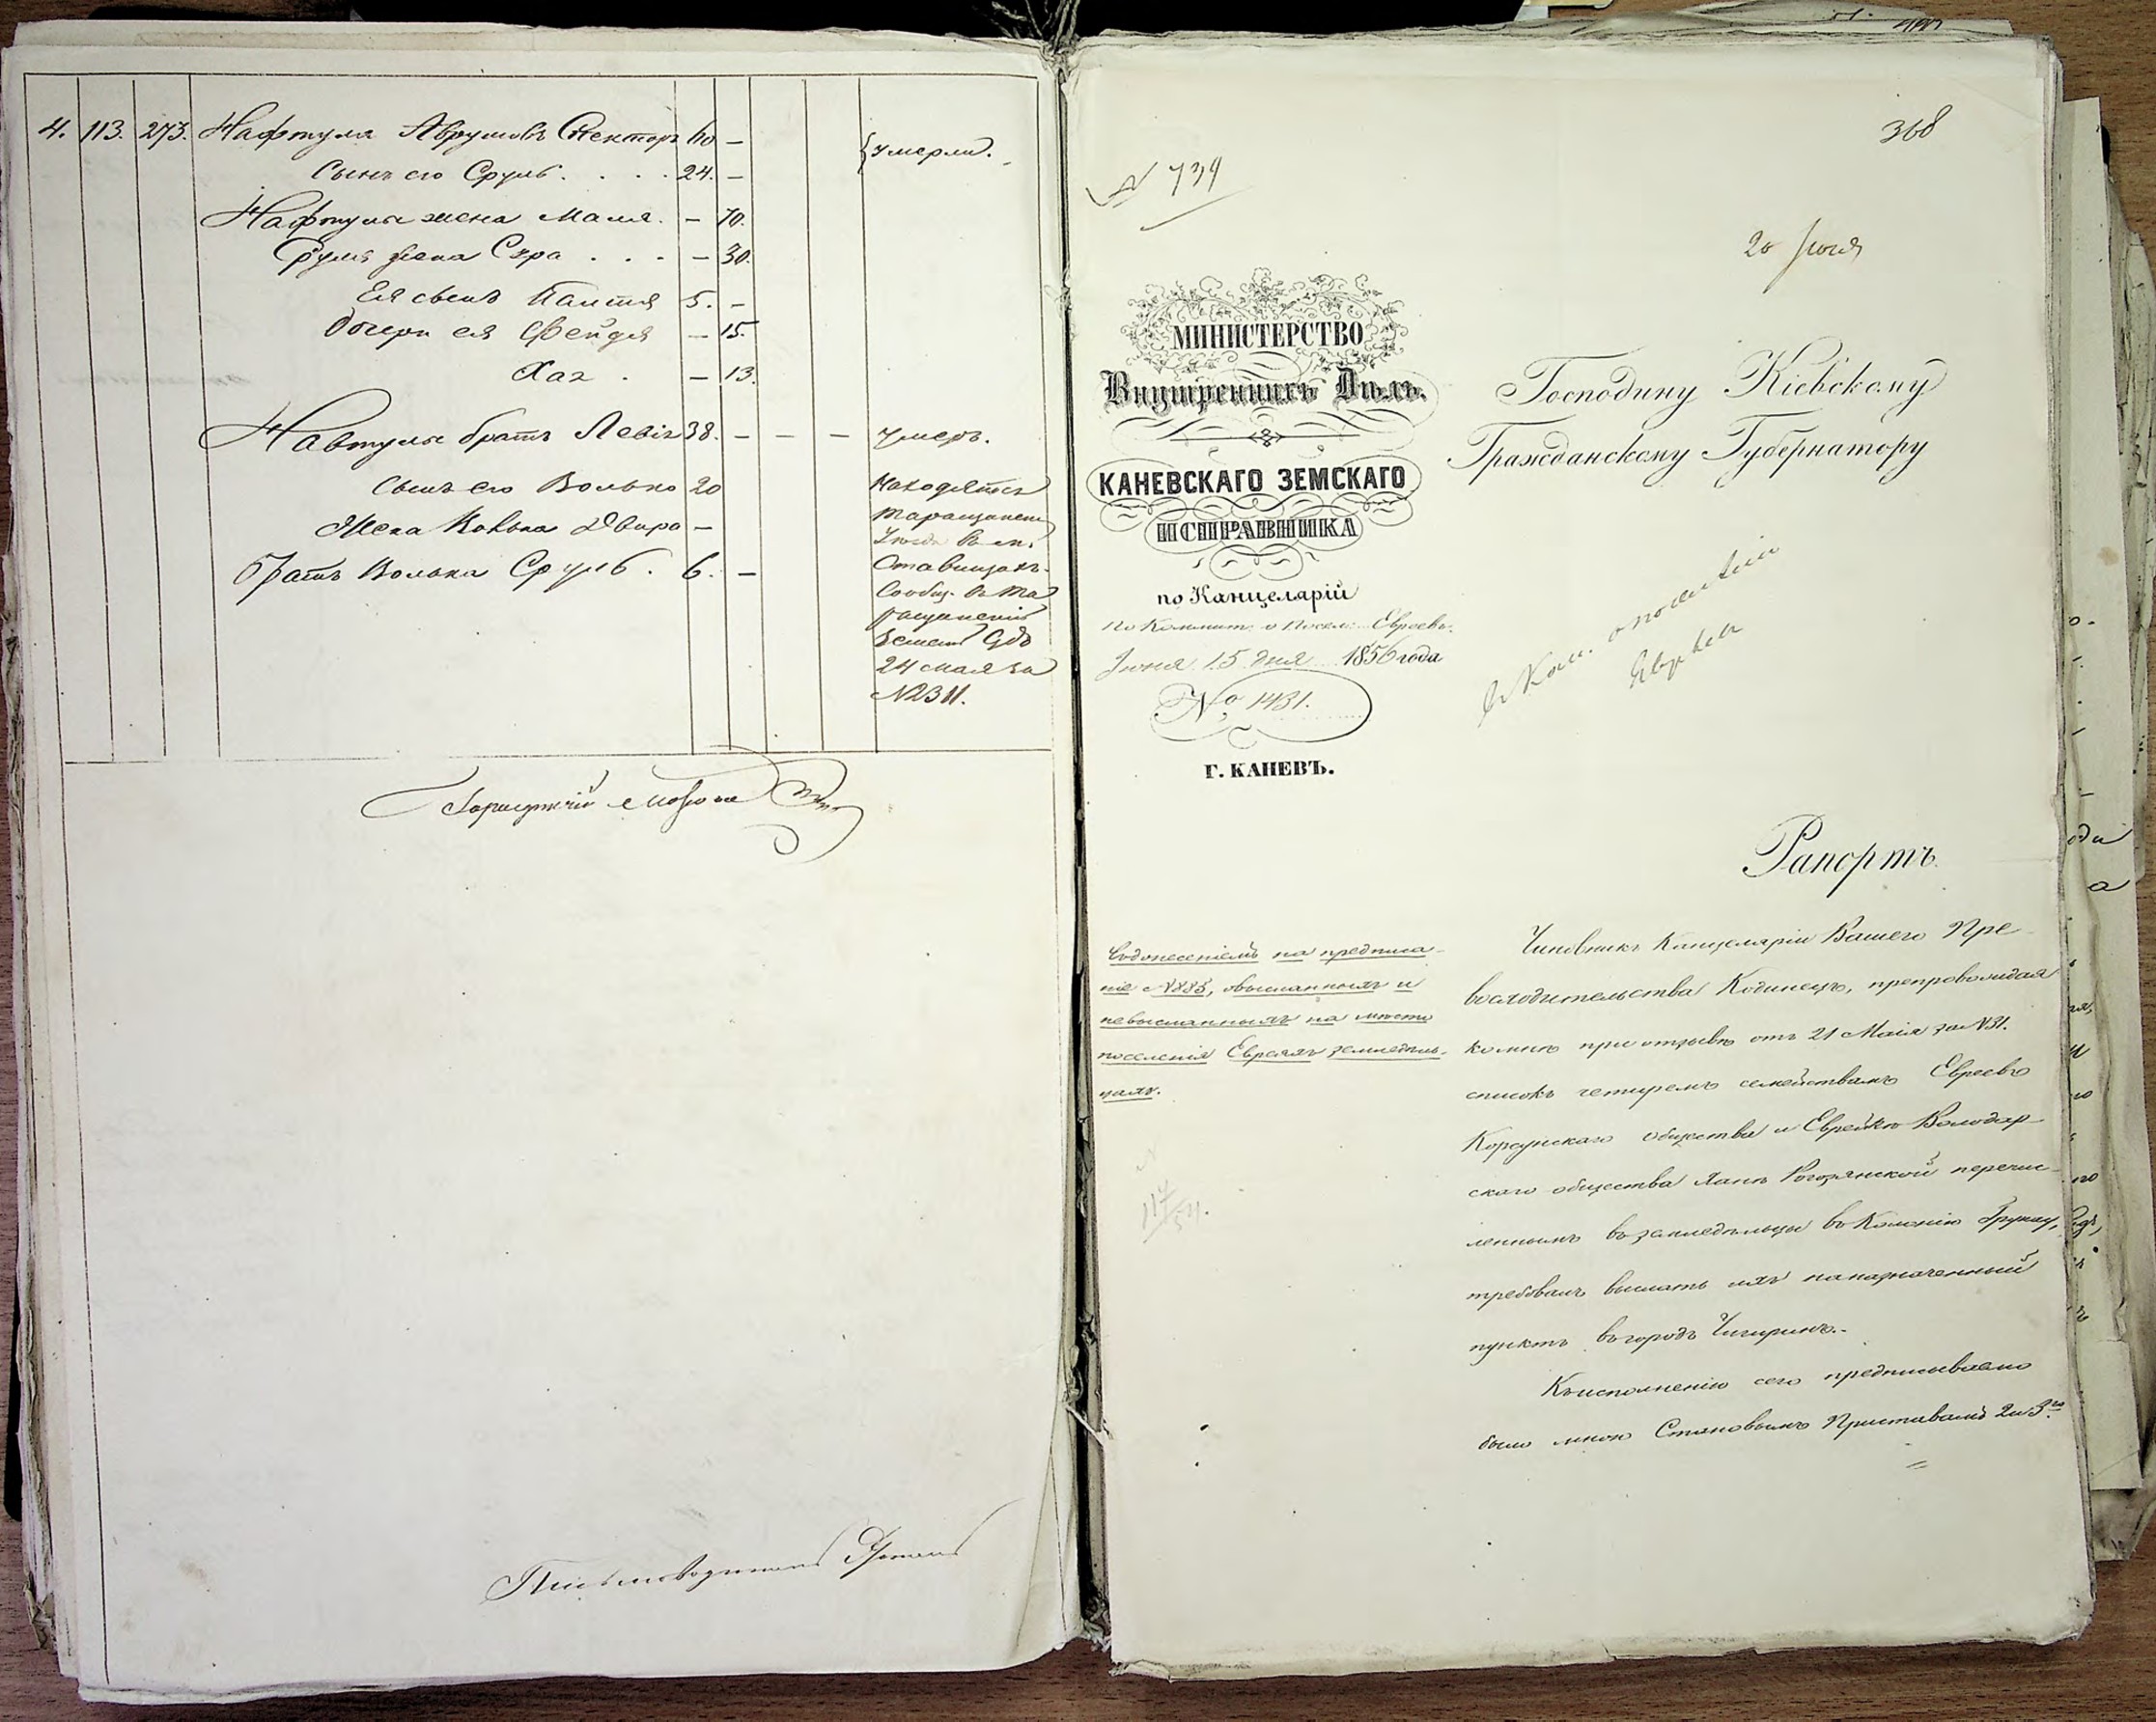 4. 113. 273. Нафтула Аврумовъ Спекторъ 60 – умерли.
Сынъ его Сруль . . . . 24. –
Нафтулы жена Маля. – 70.
Сруля жена Сура . . . – 30.
Ея сынъ Пантя 5. –
Дочери ея Фейдя – 15.
Хая . – 13.
Навтулы братъ Левiк 38. – – – умеръ.
Сынъ его Волько 20 Находятся
Жена Волька Двира – Таращанск.
Уезда въ м.
Братъ Волька Сруль . 6. – Ставищахъ.
Сообщ. въ Та
ращанскiй
Земскiй Судъ
24 мая за
№2311.
Письмоводитель
368
№ 739
20 Iюня
МИНИСТЕРСТВО
Внутреннихъ Дѣлъ.
КАНЕВСКАГО ЗЕМСКАГО
ИСПРАВНИКА
по Канцелярiи
По Коммит: о Посел: Евреевъ.
Iюня 15 дня 1856 года
№ 1431.
Г. КАНЕВЪ.
Господину Кiевскому
Гражданскому Губернатору
Въ Ком. о поселенiи
Евреевъ
Рапортъ
Съ донесенiемъ на предписа-
нiе №885, о высланныхъ и
невысланныхъ на мѣсто
поселенiя Евреяхъ земледѣль-
цахъ.
Чиновникъ Канцелярiи Вашего Пре
восходительства Кодинецъ, препровождая
ко мнѣ при отзывѣ отъ 21 Маiя за №31.
списокъ четыремъ семействамъ Евреевъ
Корсунскаго общества и Еврейкѣ Володар-
скаго общества Ханѣ Рогозянской перечис-
леннымъ въ земледѣльцы въ Колонiю Трукаç,
требовалъ выслать ихъ на назначенный
пунктъ въ городъ Чигиринъ.-
Къ исполненiю сего предписываемо
было мною Становымъ Приставамъ 2 и 3го